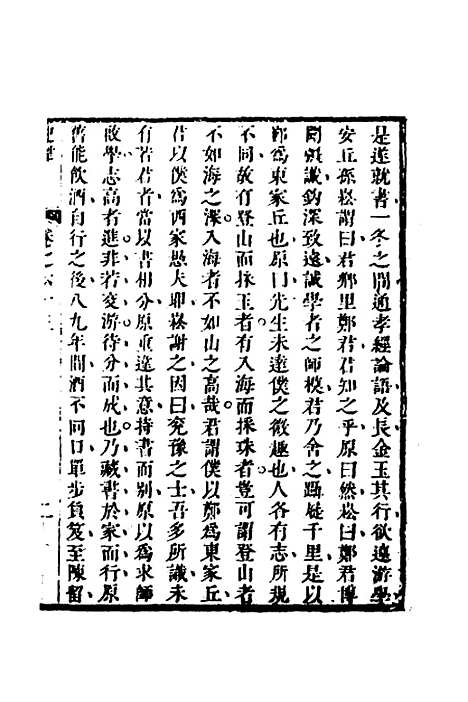 是遂就書一冬之間通孝經論語及長金玉其行欲遠游學
安丘孫崧謂曰君鄉里鄭君君知之乎原曰然崧曰鄭君博
聞彊識鈎深致遠誠學者之師模君乃舍之躡屣千里是以
鄭爲東家丘也原曰先生未達僕之微趣也人各有志所規
不同故有登山而採玉者有入海而採珠者豈可謂登山者
不如海之深入海者不如山之高哉君謂僕以鄭爲東家丘
君以僕爲西家愚夫耶崧謝之因曰兗豫之士吾多所識未
有若君者當以書相分原重違其意持書而別原以爲求師
啟學志高者進非若交游待分而成也乃藏書於家而行原
舊能飲酒自行之後八九年間酒不向口單步負笈至陳留
卷之六十三